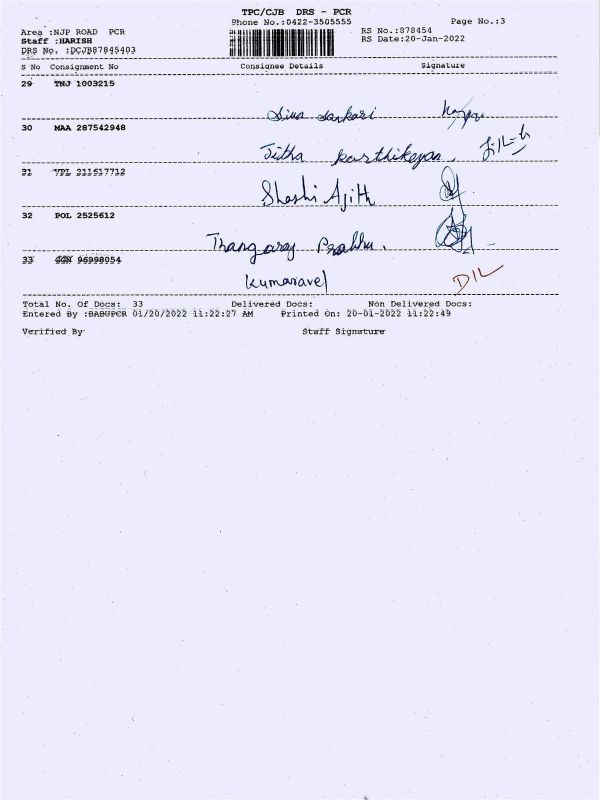 TPC/CJB DRS - PCR
Phone No.:0422-3505555 Page No.:3
Area :NJP ROAD PCR RS No.:878454
Staff :HARISH RS Date:20-Jan-2022
DRS No. :DCJB87845403
S No Consignment No Consignee Details Signature
29 TNJ 1003215
Siva Sankari
30 MAA 287542948
Jitha Karthikeyan.
31 VPL 211617712
Shashi Ajith
32 POL 2525612
Thangaraj Prabhu.
33 96998054
Kumaravel D/L
Total No. Of Docs: 33 Delivered Docs: Non Delivered Docs:
Entered By :BABUPCR 01/20/2022 11:22:27 AM Printed On: 20-01-2022 11:22:49
Verified By Staff Signature